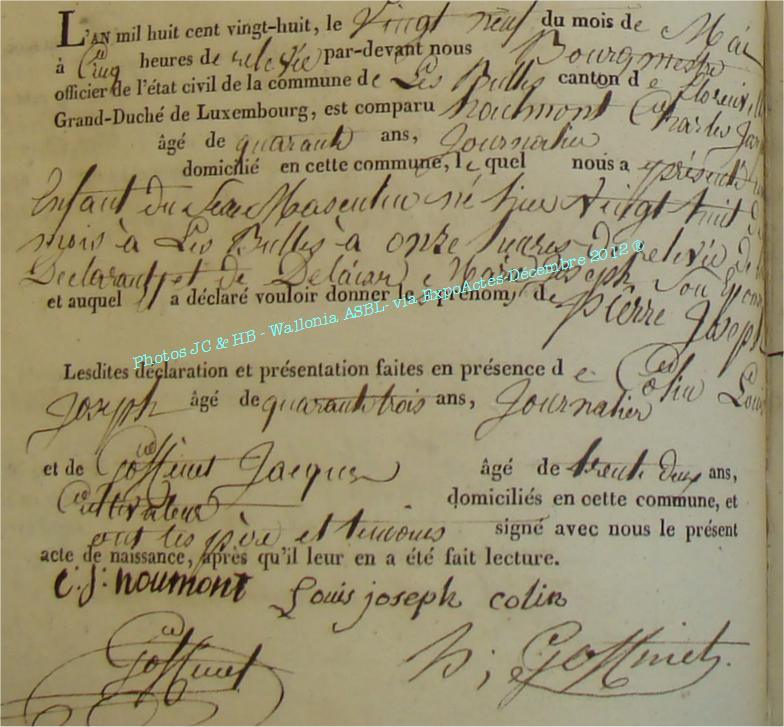 L'AN mil huit cent vingt-huit, le Vingt neuf du mois de Mai
à Cinq heures de relevée par-devant nous Bourgmestre
officier de l'état civil de la commune de Les Bulles canton d e Florenville
Grand-Duché de Luxembourg, est comparu Noumont Charles Jos
âgé de quarante ans, Journalier
domicilié en cette commune, le quel nous a présenté
Enfant du Sexe Masculin né hier Vingt huit
mois à Les Bulles à onze heures de relevée de
Déclarant et de Marie Joseph Son Epouse
et auquel a déclaré vouloir donner les prénoms de Pierre Joseph
Photos JC & HB - Wallonia ASBL- via ExpoActes Décembre 2012 ®
Lesdites déclaration et présentation faites en présence d e Colin Louis
Joseph âgé de quarante trois ans, Journalier
et de Goffinet Jacques âgé de trente deux ans,
Cultivateur domiciliés en cette commune, et
ont les père et temoins signé avec nous le présent
acte de naissance, après qu'il leur en a été fait lecture.
C: J: Noumont Louis joseph colin
Goffinet Goffinet